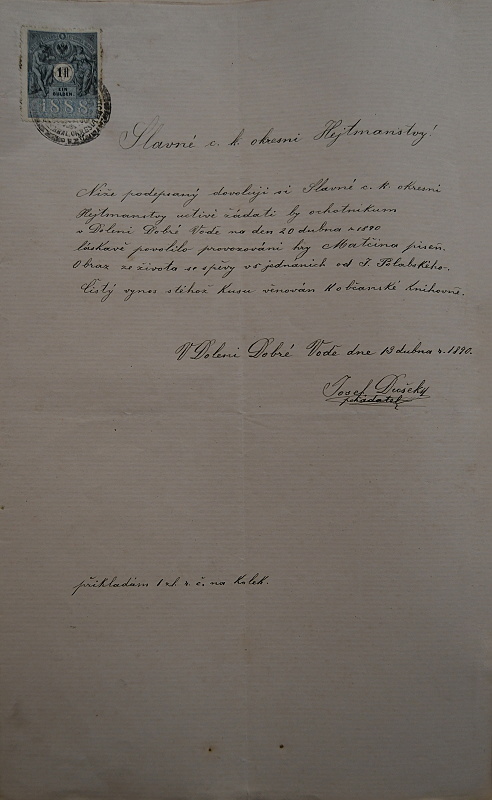 1 fl
EIN
GULDEN.
1888
Slavné c. k. okresni Hejtmanstvy!
Niže podepsaný dovoluji si Slavné c. k. okresni
Hejtmanstvy uctivě žádati by ochotnikum
v Doleni Dobré Vodě na den 20 dubna r 1890
láskavě povolilo provozováni hry Matčina piseň.
Obraz ze života se spěvy v 5 jednánich od J. Polabského.
Čistý vynos stéhož Kusu věnován K občanské Knihovně.
V Doleni Dobré Vodě dne 13 dubna r. 1890.
Josef Dušek
pořadatel
přikladám 1 zl. r. č. na Kolek.